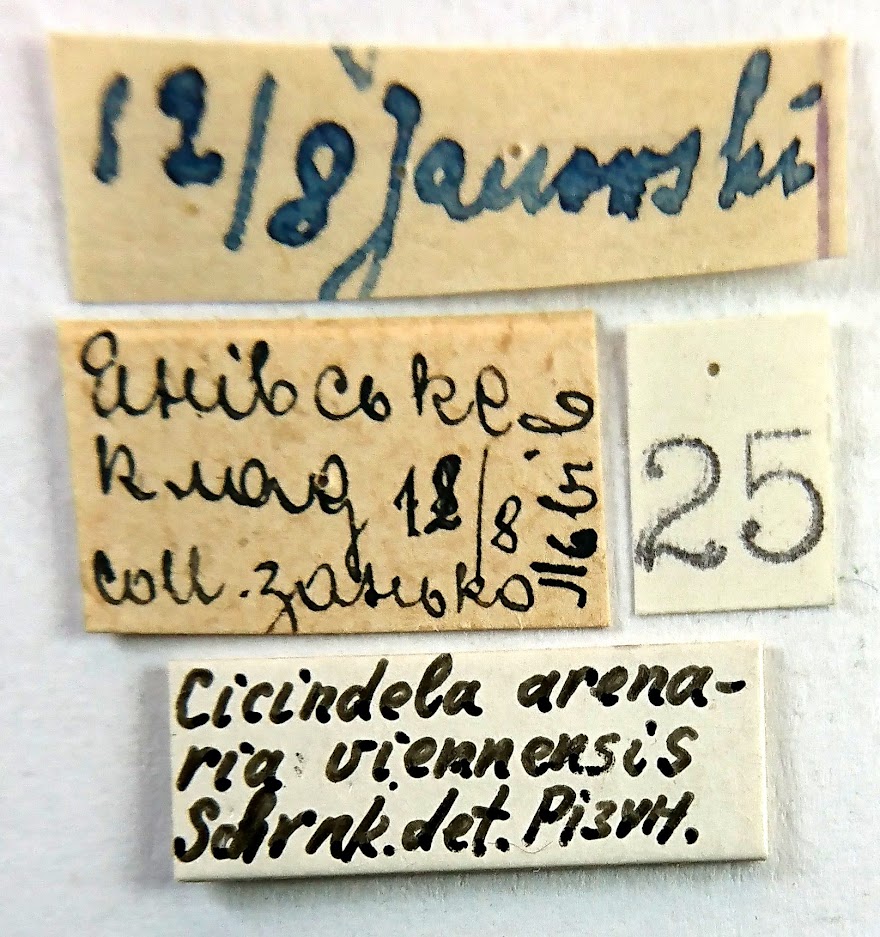 12/8 Janowski
Янівське
клад 12/8
coll. занько
Львів
25
Cicindela arena-
ria viennensis
Schrnk. det. Різун.